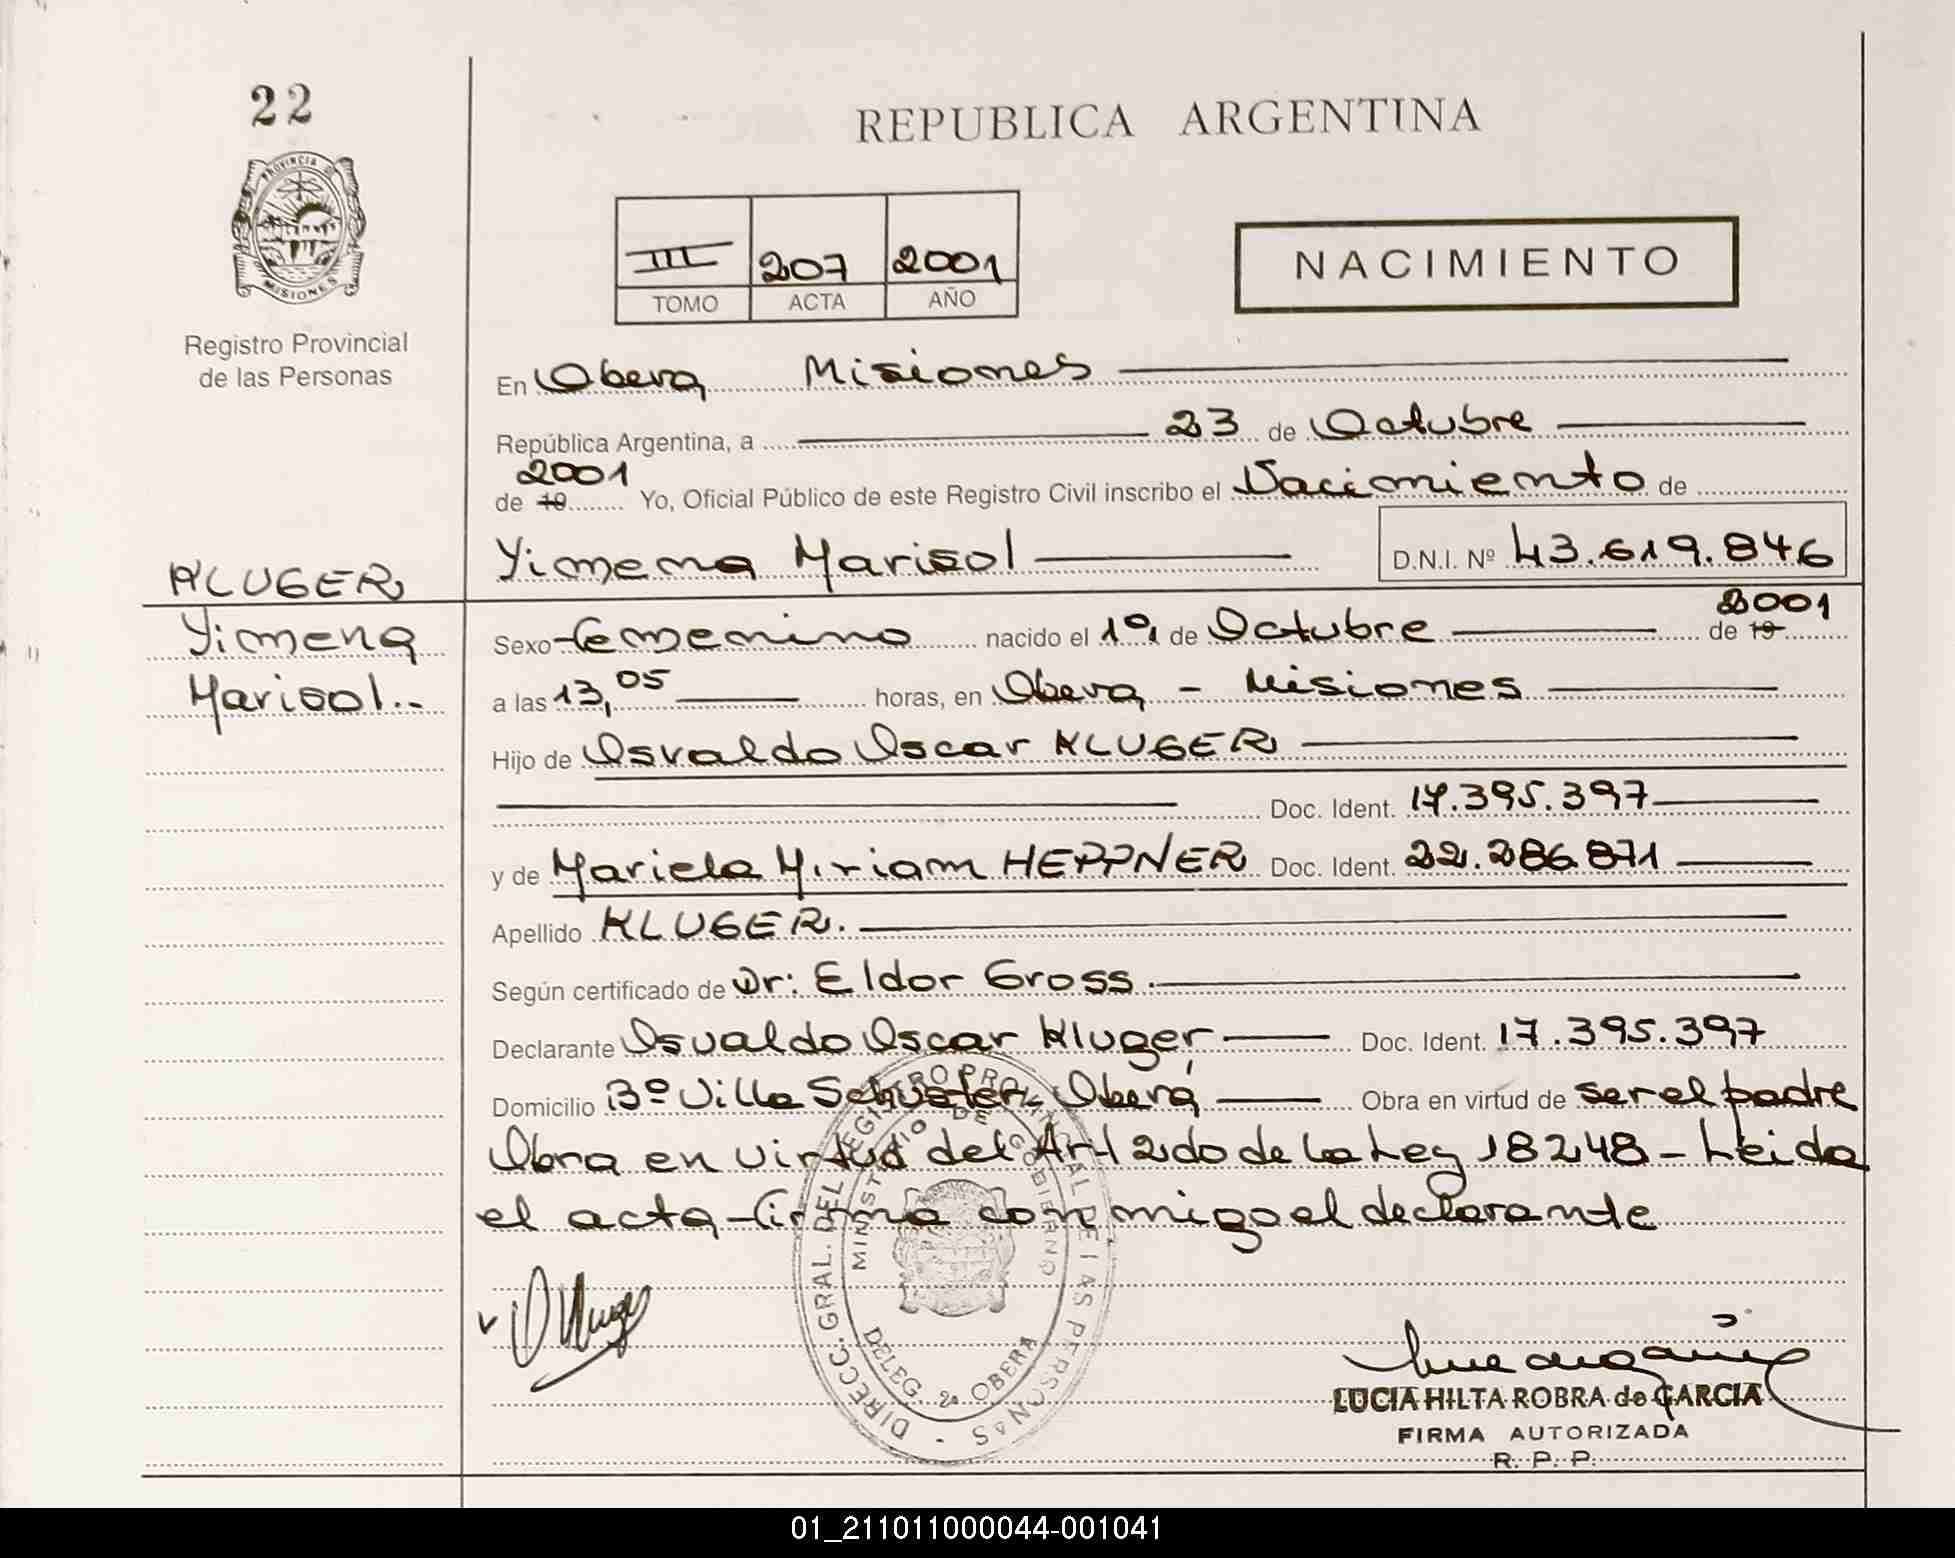 22
REPUBLICA ARGENTINA
PROVINCIA DE
MISIONES
Registro Provincial
de las Personas
III 207 2001
TOMO ACTA AÑO
NACIMIENTO
En Obera Misiones
República Argentina, a 23 de Octubre
2001
de 19 Yo, Oficial Público de este Registro Civil inscribo el Nacimiento de
Yimena Marisol D.N.I. Nº 43.619.846
KLUGER
Yimena
Marisol..
2001
Sexo femenino nacido el 1º, de Octubre de 19
a las 13,05 horas, en Obera - Misiones
Hijo de Osvaldo Oscar KLUGER
Doc. Ident. 17.395.397
y de Mariela Miriam HEPPNER Doc. Ident. 22.286.871
Apellido KLUGER.
Según certificado de Dr: Eldor Gross.
Declarante Osvaldo Oscar Kluger Doc. Ident. 17.395.397
Domicilio Bº Villa Schuster- Oberá Obra en virtud de ser el padre
Obra en virtud del Art 2do de la Ley 18248 - Leida
el acta firma conmigo el declarante
DIRECC. GRAL. DEL REGISTRO PROVINCIAL DE LAS PERSONAS -
MINISTERIO DE GOBIERNO
DELEG. 2ª OBERA
LUCIA HILTA ROBRA de GARCIA
FIRMA AUTORIZADA
R. P. P.
01_211011000044-001041